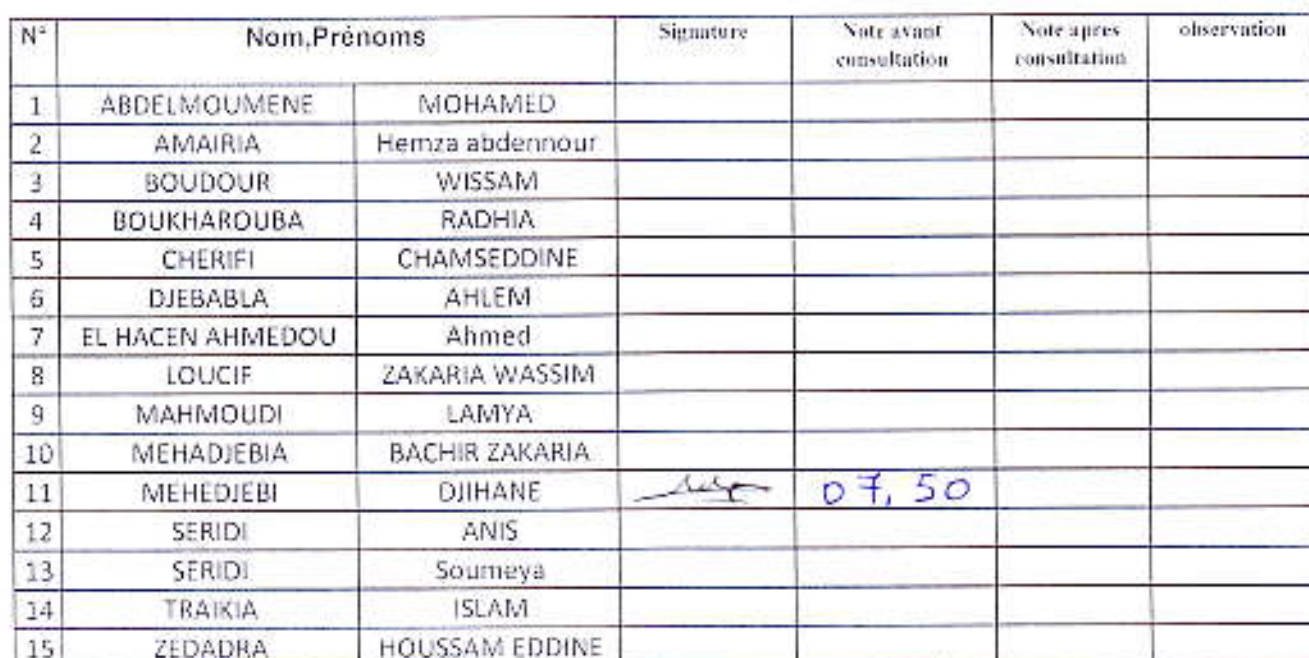 N° Nom,Prénoms Signature Note avant consultation Note apres consultation observation
1 ABDELMOUMENE MOHAMED
2 AMAIRIA Hemza abdennour
3 BOUDOUR WISSAM
4 BOUKHAROUBA RADHIA
5 CHERIFI CHAMSEDDINE
6 DJEBABLA AHLEM
7 EL HACEN AHMEDOU Ahmed
8 LOUCIF ZAKARIA WASSIM
9 MAHMOUDI LAMYA
10 MEHADJEBIA BACHIR ZAKARIA
11 MEHEDJEBI DJIHANE 07,50
12 SERIDI ANIS
13 SERIDI Soumeya
14 TRAIKIA ISLAM
15 ZEDADRA HOUSSAM EDDINE